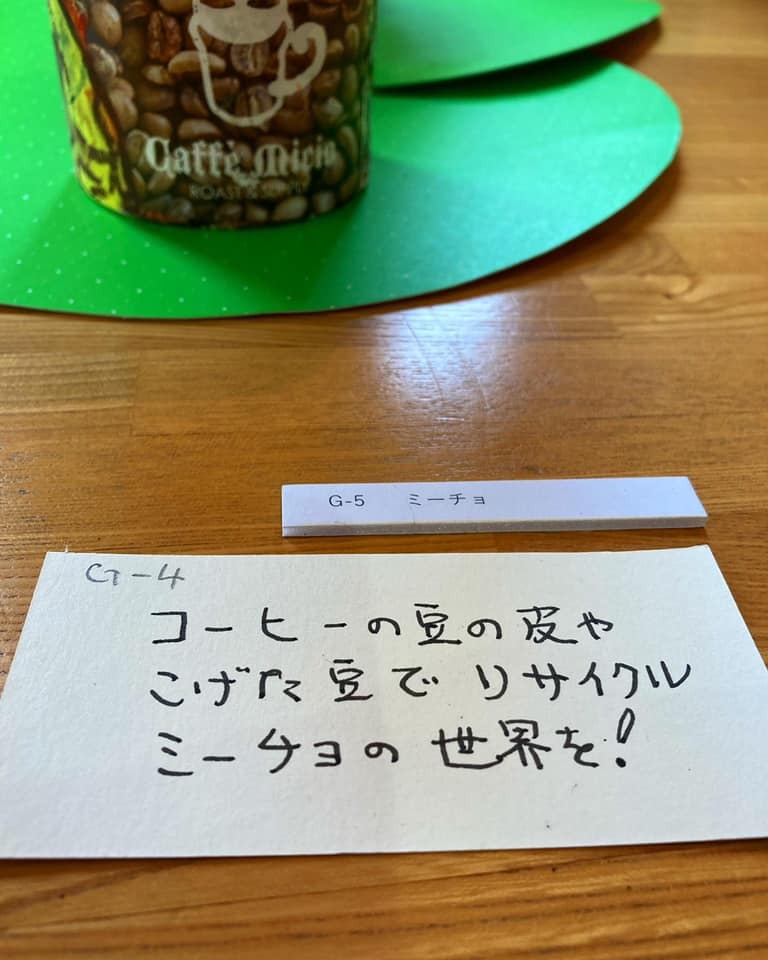 Caffè Micio
ROAST & SUPPLY
G-5 ミーチョ
G-4
コーヒーの豆の皮や
こげた豆で リサイクル
ミーチョの 世界を!